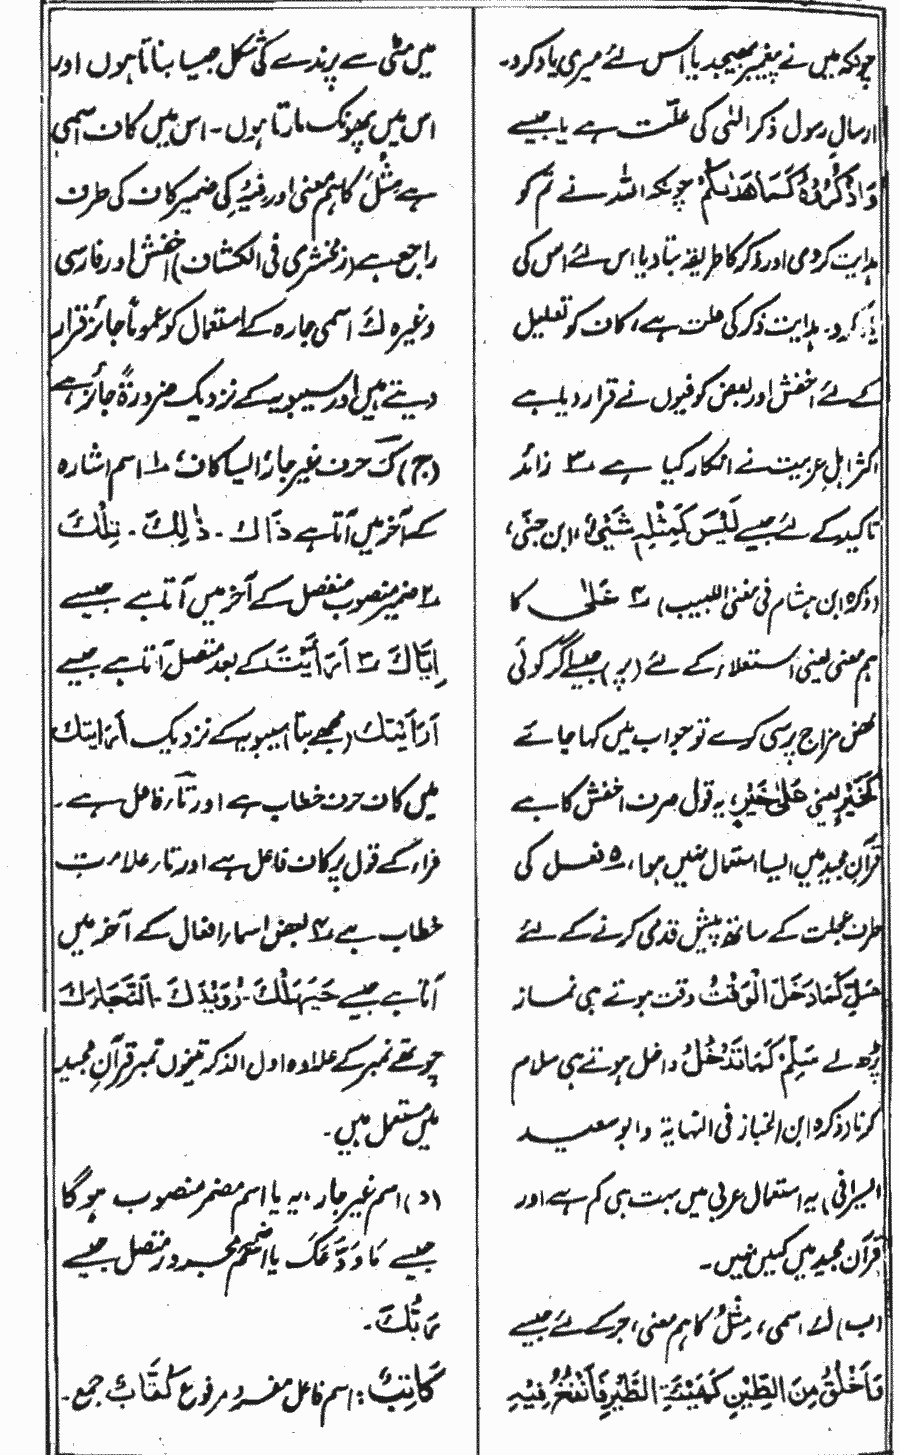 چونکہ میں نے پیغمبر بھیجدیا اس لئے میری یاد کرو۔
ارسال رسول ذکر الٰہی کی علّت ہے یا جیسے
وَاذْكُرُوْهُ كَمَا هَدٰىكُمْ چونکہ اللہ نے تم کو
ہدایت کردی اور ذکر کا طریقہ بتا دیا اس لئے اس کی
یاد کرو۔ ہدایت ذکر کی علت ہے، کاف کو تعلیل
کے لئے اخفش اور بعض کوفیوں نے قرار دیا ہے
اکثر اہل عربیت نے انکار کیا ہے ۳ زائد
تاکید کے لئے جیسے لَيْسَ كَمِثْلِهٖ شَيْئٌ، (ابن جنّی،
(ذکرہ ابن ہشام فی مغنی اللبیب) ۴ عَلٰی کا
ہم معنی یعنی استعلاء کے لئے (پر) جیسے اگر کوئی
بعض مزاج پرسی کرے تو جواب میں کہا جائے
كَخَيْرٍ یعنی عَلٰى خَيْرٍ، یہ قول صرف اخفش کا ہے
قرآن مجید میں ایسا استعمال نہیں ہوا، ۵ فعل کی
طرف عجلت کے ساتھ پیش قدمی کرنے کے لئے
صَلِّ كَمَا دَخَلَ الْوَقْتُ وقت ہوتے ہی نماز
پڑھ لے سَلِّمْ كَمَا تَدْخُلُ داخل ہوتے ہی سلام
کرنا (ذکرہ ابن الخباز فی النہایۃ وابو سعید
السیرافی) یہ استعمال عربی میں بہت ہی کم ہے اور
قرآن مجید میں کہیں نہیں۔
(ب) كَ اسمی، مِثْلُ کا ہم معنی، جر کے لئے جیسے
فَاَخْلُقُ مِنَ الطِّيْنِ كَهَيْئَةِ الطَّيْرِ فَاَنْفُخُ فِيْهِ
میں مٹی سے پرندے کی شکل جیسا بناتا ہوں اور
اس میں پھونک مارتا ہوں۔ اس میں کاف اسمی
ہے مِثْلُ کا ہم معنی اور فِیْہِ کی ضمیر کاف کی طرف
راجع ہے (زمخشری فی الکشاف) اخفش اور فارسی
وغیرہ كَ اسمی جارہ کے استعمال کو عموماً جائز قرار
دیتے ہیں اور سیبویہ کے نزدیک ضرورۃً جائز ہے
(ج) كَ حرف غیر جار، ایسا کاف، ۱ اسم اشارہ
کے آخر میں آتا ہے ذَاكَ۔ ذٰلِكَ۔ تِلْكَ
۲ ضمیر منصوب منفصل کے آخر میں آتا ہے جیسے
اِيَّاكَ ۳ اَرَاَيْتَ کے بعد متصل آتا ہے جیسے
اَرَاَيْتَكَ (مجھے بتا) سیبویہ کے نزدیک اَرَايتك
میں کاف حرف خطاب ہے اور تاء فاعل ہے۔
فراء کے قول پر کاف فاعل ہے اور تاء علامت
خطاب ہے ۴ بعض اسماء افعال کے آخر میں
آتا ہے جیسے حَيَّهَلَكَ۔ رُوَيْدَكَ۔ اَلنَّجَاءَكَ
چوتھے نمبر کے علاوہ اول الذکر تینوں نمبر قرآن مجید
میں مستعمل ہیں۔
(د) اسم غیر جار، یہ یا اسم مضمر منصوب ہوگا
جیسے مَا وَدَّعَكَ یا اسم ضمیر مجرور متصل جیسے
رَبُّكَ۔
كَاتِبٌ: اسم فاعل مفرد مرفوع كُتَّابٌ جمع۔